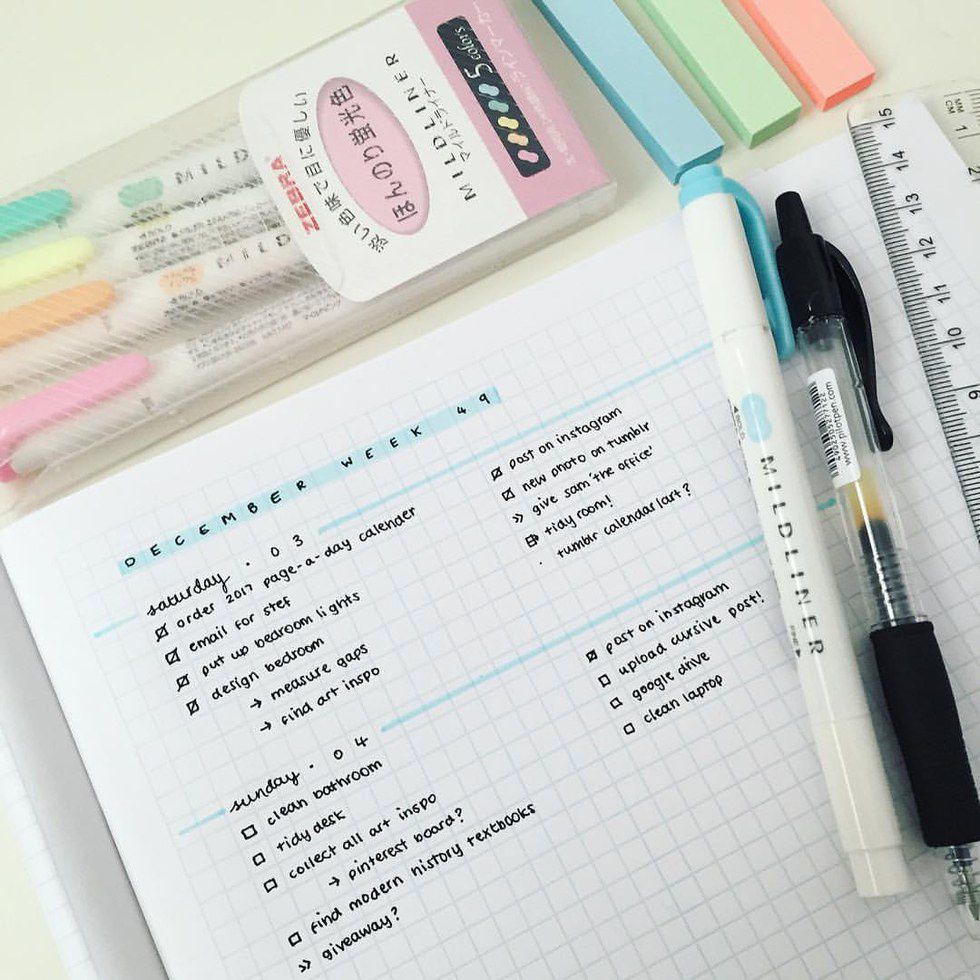 ZEBRA
淡い色味で目に優しい
ほんのり蛍光色
MILDLINER
マイルドライナー
5 colors
DECEMBER WEEK 49
saturday . 03
order 2017 page-a-day calender
email for stef
put up bedroom lights
design bedroom
→ measure gaps
→ find art inspo
post on instagram
new photo on tumblr
» give sam 'the office'
tidy room!
tumblr calendar/art?
sunday . 04
clean bathroom
tidy desk
collect all art inspo
→ pinterest board?
find modern history textbooks
» giveaway?
post on instagram
upload cursive post!
google drive
clean laptop
MILDLINER
www.pilotpen.com
MM
CM
15
14
13
12
11
10
9